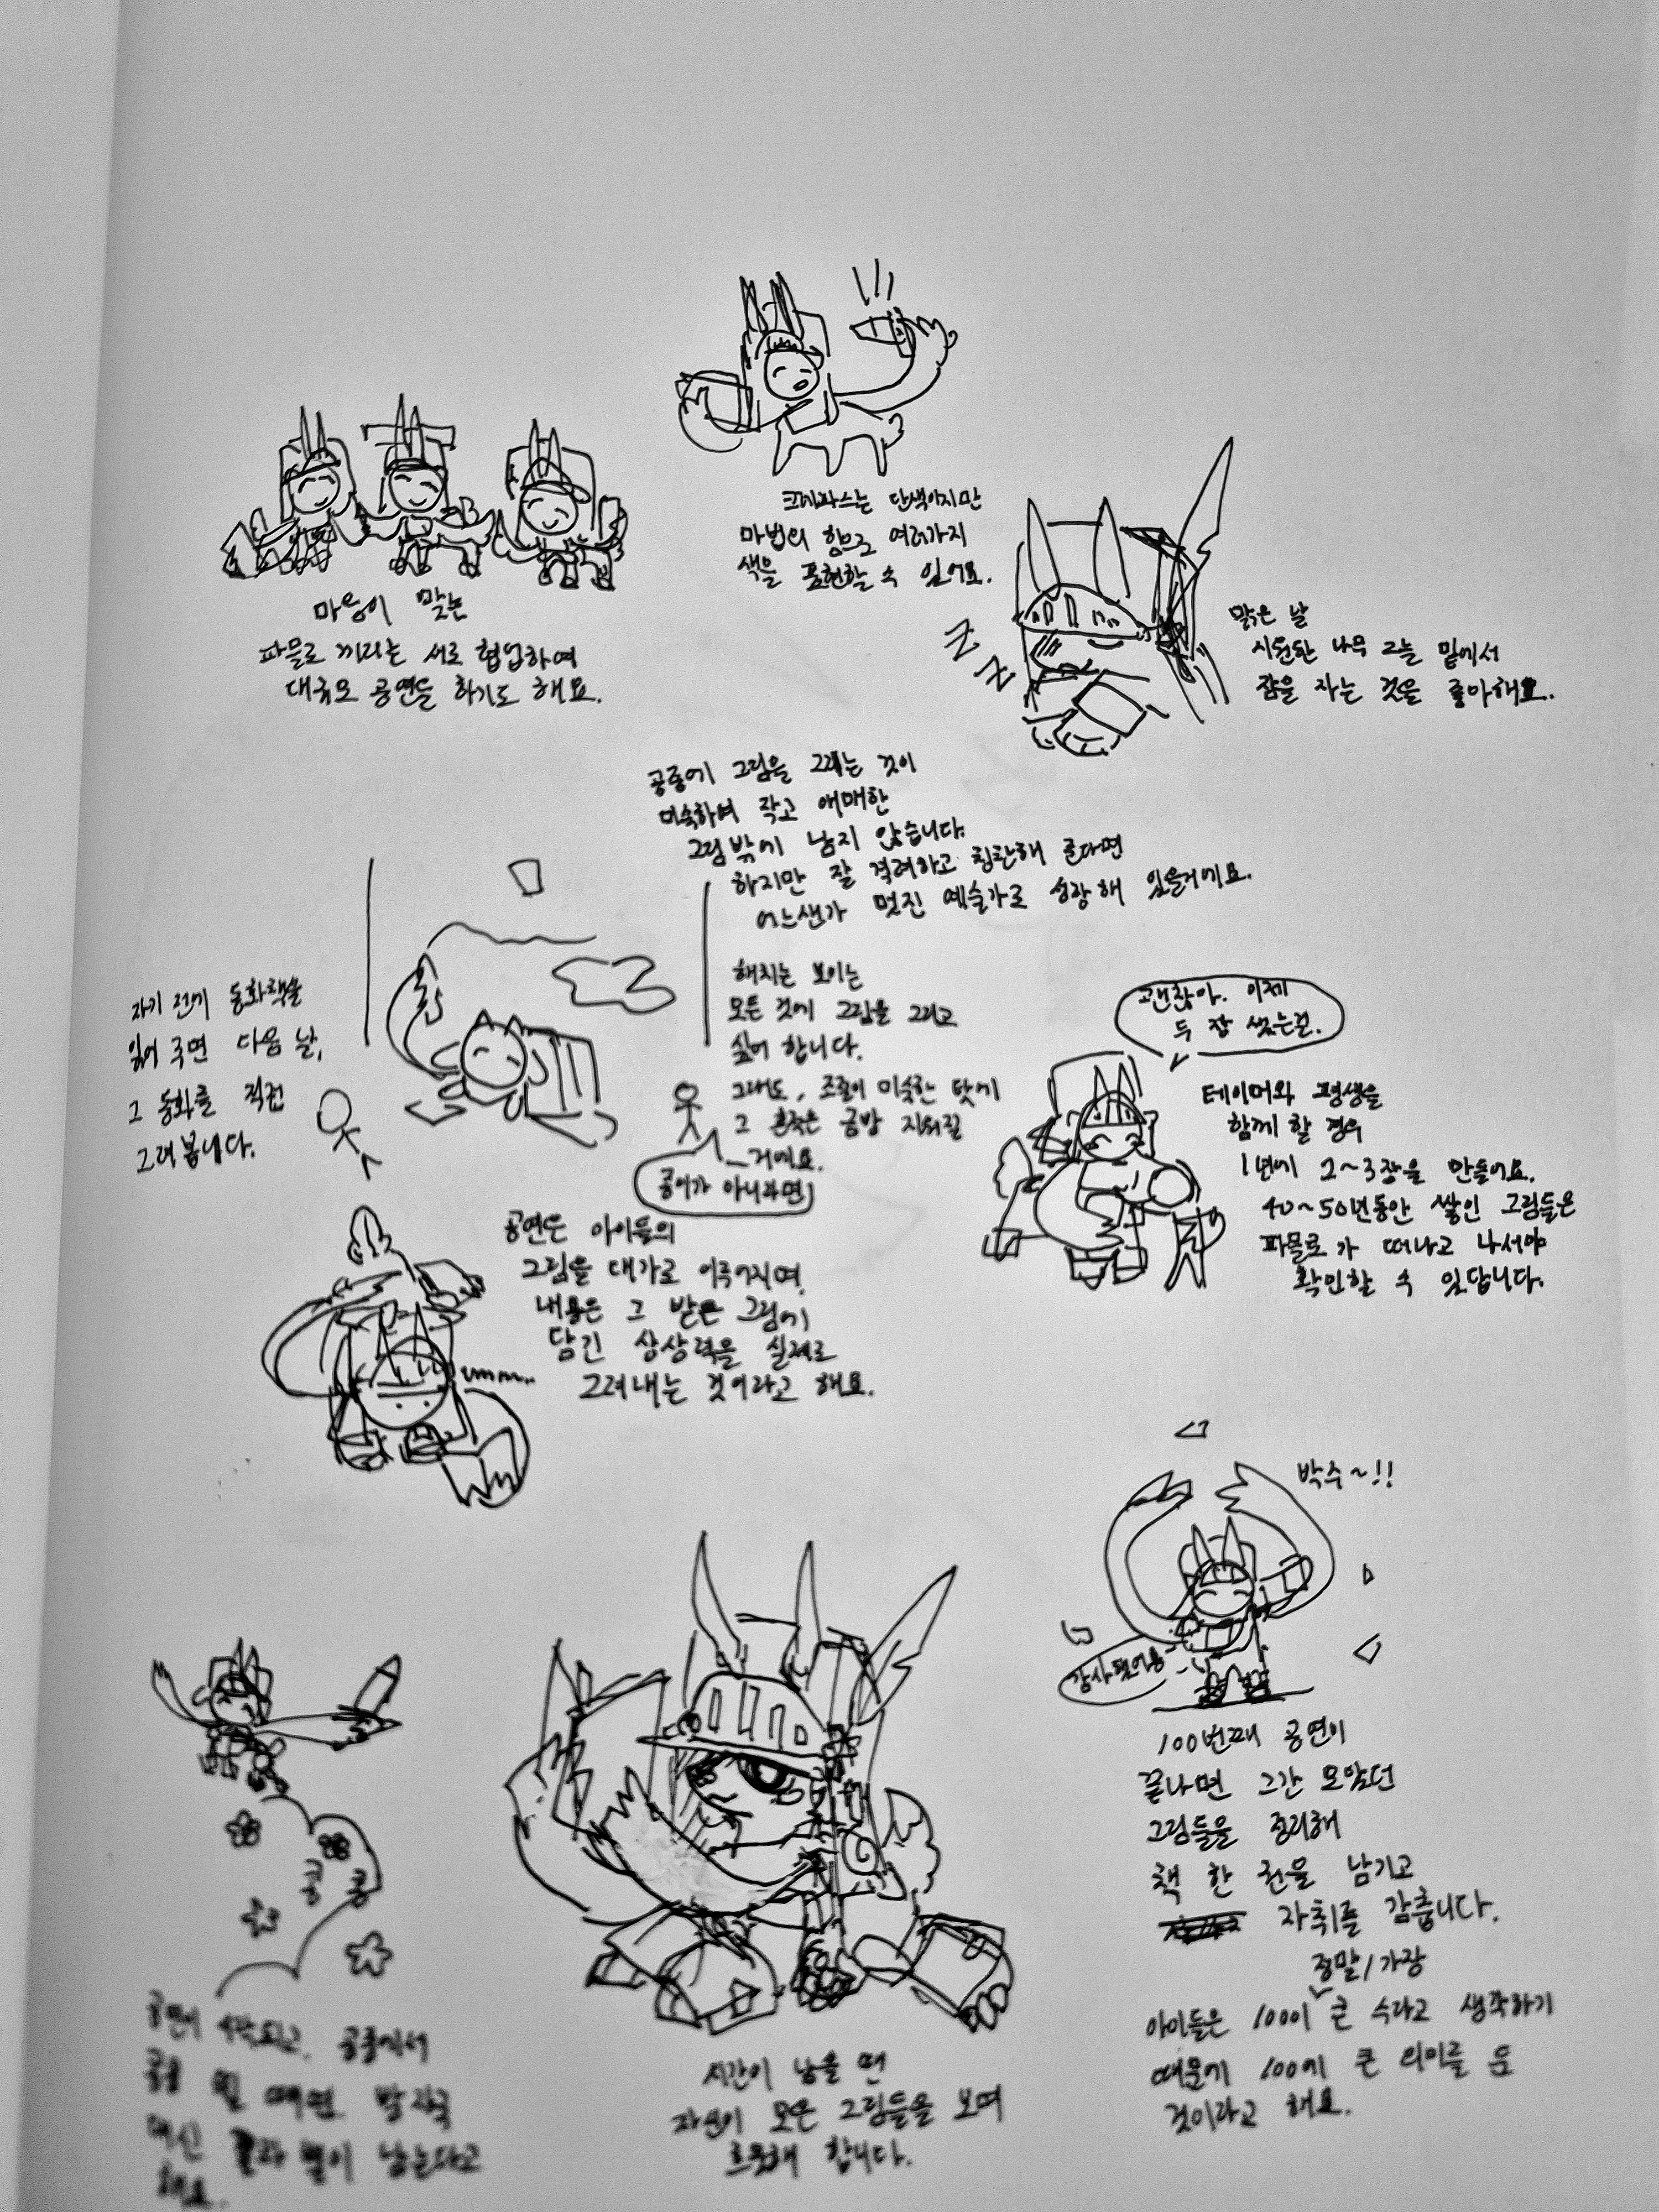 크레파스는 단색이지만
마법의 힘으로 여러가지
색을 표현할 수 있어요.
마음이 맞는
파물로 끼리는 서로 협업하여
대규모 공연을 하기도 해요.
Z Z
맑은 날
시원한 나무 그늘 밑에서
잠을 자는 것을 좋아해요.
공중에 그림을 그리는 것이
미숙하여 작고 애매한
그림밖에 남지 않습니다.
하지만 잘 격려하고 칭찬해 준다면
어느샌가 멋진 예술가로 성장해 있을거에요.
자기 전에 동화책을
읽어 주면 다음 날,
그 동화를 직접
그려봅니다.
해치는 보이는
모든 것에 그림을 그리고
싶어 합니다.
그래도, 조절이 미숙한 탓에
그 흔적은 금방 지워질
거에요.
종이가 아니라면
괜찮아. 이제
두 장 썼는걸.
테이머와 평생을
함께 할 경우
1년에 2~3장을 만들어요.
40~50년동안 쌓인 그림들은
파물로가 떠나고 나서야
확인할 수 있답니다.
공연은 아이들의
그림을 대가로 이루어지며,
내용은 그 받은 그림에
담긴 상상력을 실제로
그려내는 것이라고 해요.
umm..
박수~!!
감사
100번째 공연이
끝나면 그간 모았던
그림들을 정리해
책 한 권을 남기고
자취를 감춥니다.
정말/가장
아이들은 100이 큰 수라고 생각하기
때문에 100에 큰 의미를 둔
것이라고 해요.
콩 콩
공연이 시작되고, 공중에서
콩콩 뛸 때면 발자국
대신 꽃과 별이 남는다고
해요.
시간이 남을 땐
자신이 모은 그림들을 보며
흐뭇해 합니다.